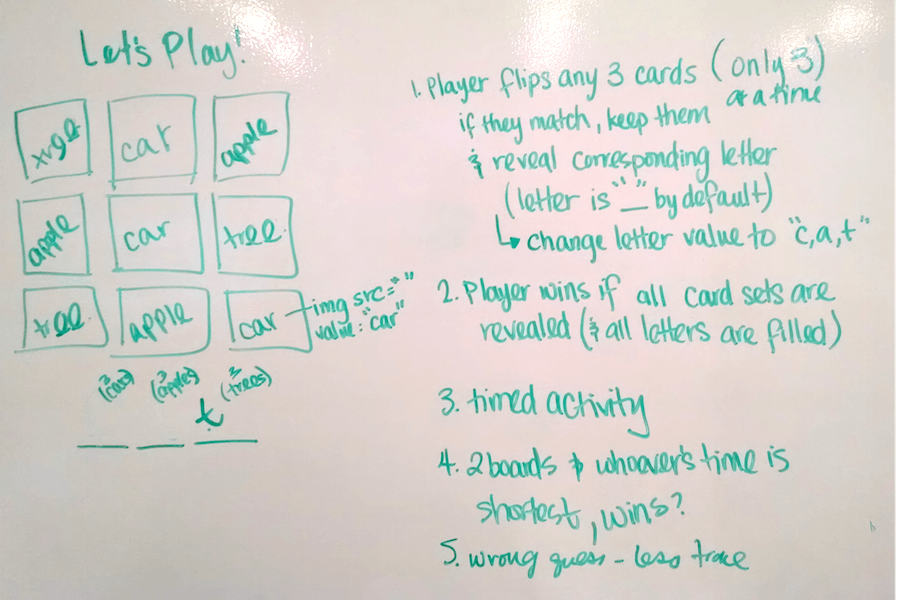 Let's Play!
tree
car
apple
apple
car
tree
tree
apple
car
img src=" "
value: "car"
3 (cars)
3 (apples)
3 (trees)
t
1. Player flips any 3 cards (only 3)
at a time
if they match, keep them
& reveal corresponding letter
(letter is "_" by default)
↳ change letter value to "c,a,t"
2. Player wins if all card sets are
revealed (& all letters are filled)
3. timed activity
4. 2 boards & whoever's time is
shortest, wins?
5. wrong guess - less